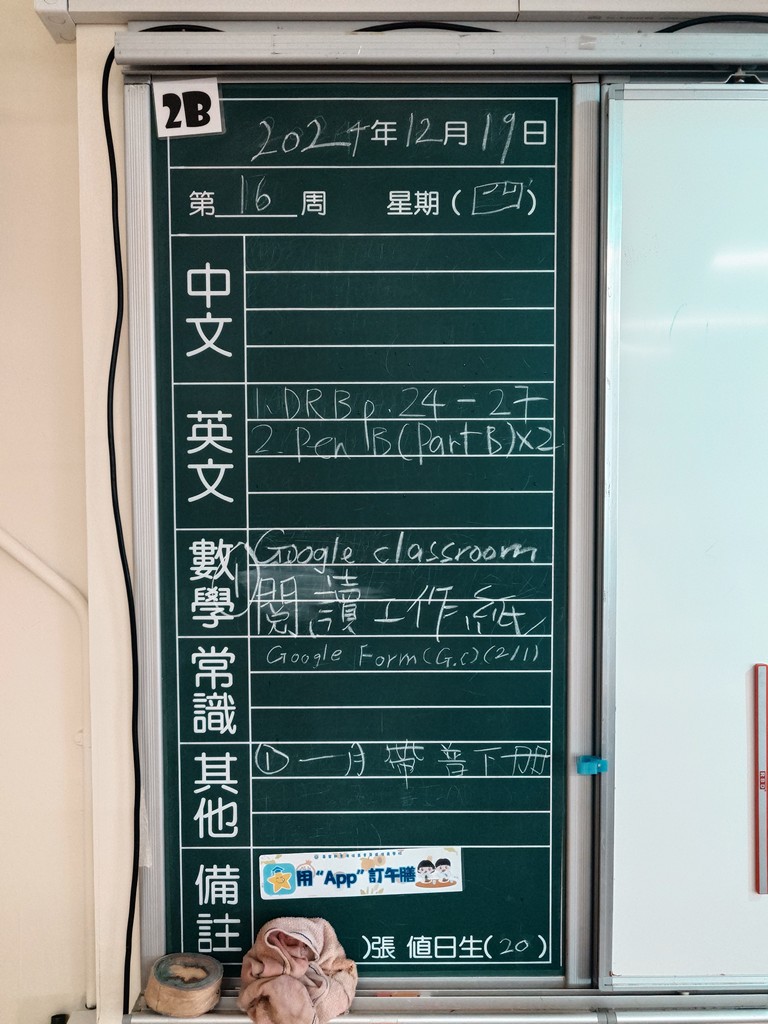 2B
2024年12月19日
第16周 星期(四)
中文
英文
1. DRB p.24-27
2. Pen B(Part B)x2
數學
Google classroom
閱讀工作紙
常識
Google Form(G.C)(2/1)
其他
① 一月帶普下冊
備註
用“App”訂午膳
)張 值日生(20)